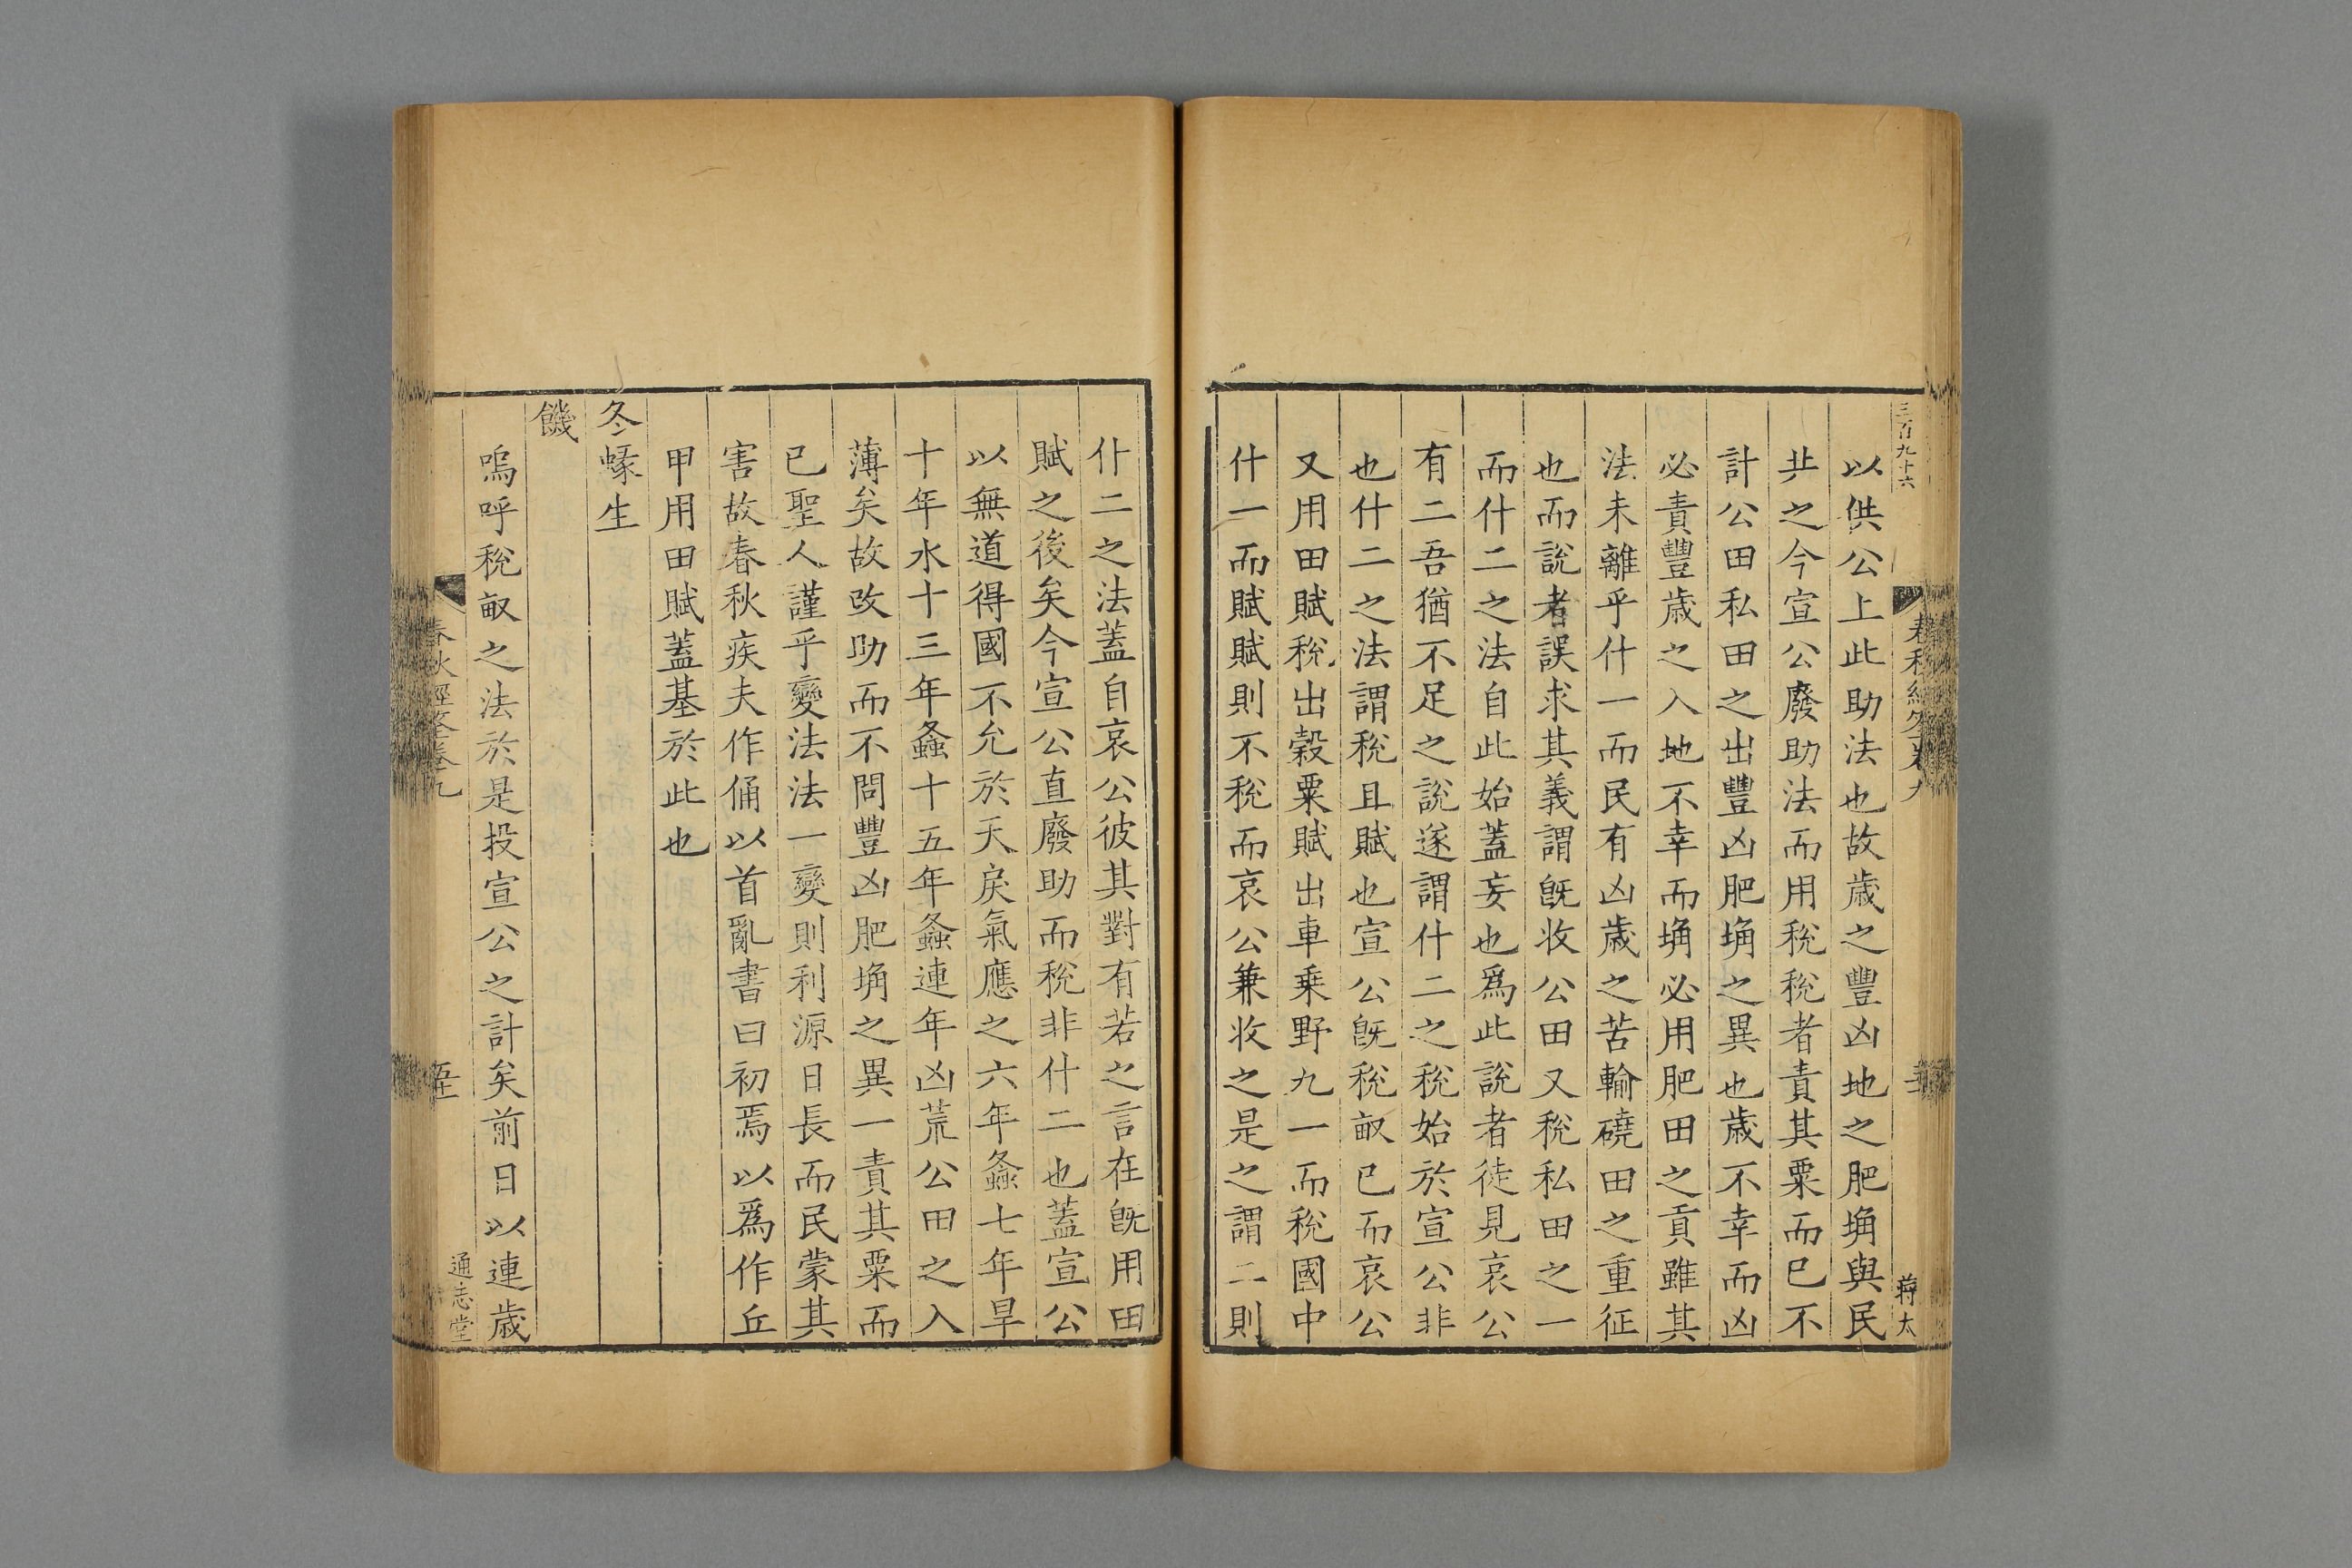 三百九十六
蒋太
以供公上此助法也故歳之豐凶地之肥埆與民
共之今宣公廢助法而用稅稅者責其粟而已不
計公田私田之出豐凶肥埆之異也歳不幸而凶
必責豐歳之入地不幸而埆必用肥田之貢雖其
法未離乎什一而民有凶歳之苦輸磽田之重征
也而說者誤求其義謂旣收公田又稅私田之一
而什二之法自此始蓋妄也爲此說者徒見哀公
有二吾猶不足之說遂謂什二之稅始於宣公非
也什二之法謂稅且賦也宣公旣稅畝已而哀公
又用田賦稅出穀粟賦出車乗野九一而稅國中
什一而賦賦則不稅而哀公兼收之是之謂二則
什二之法蓋自哀公彼其對有若之言在旣用田
賦之後矣今宣公直廢助而稅非什二也蓋宣公
以無道得國不允於天戾氣應之六年螽七年旱
十年水十三年螽十五年螽連年凶荒公田之入
薄矣故改助而不問豐凶肥埆之異一責其粟而
已聖人謹乎變法法一變則利源日長而民蒙其
害故春秋疾夫作俑以首亂書曰初焉以爲作丘
甲用田賦蓋基於此也
冬蝝生
饑
嗚呼稅畝之法於是投宣公之計矣前日以連歳
春秋經筌卷九
通志堂